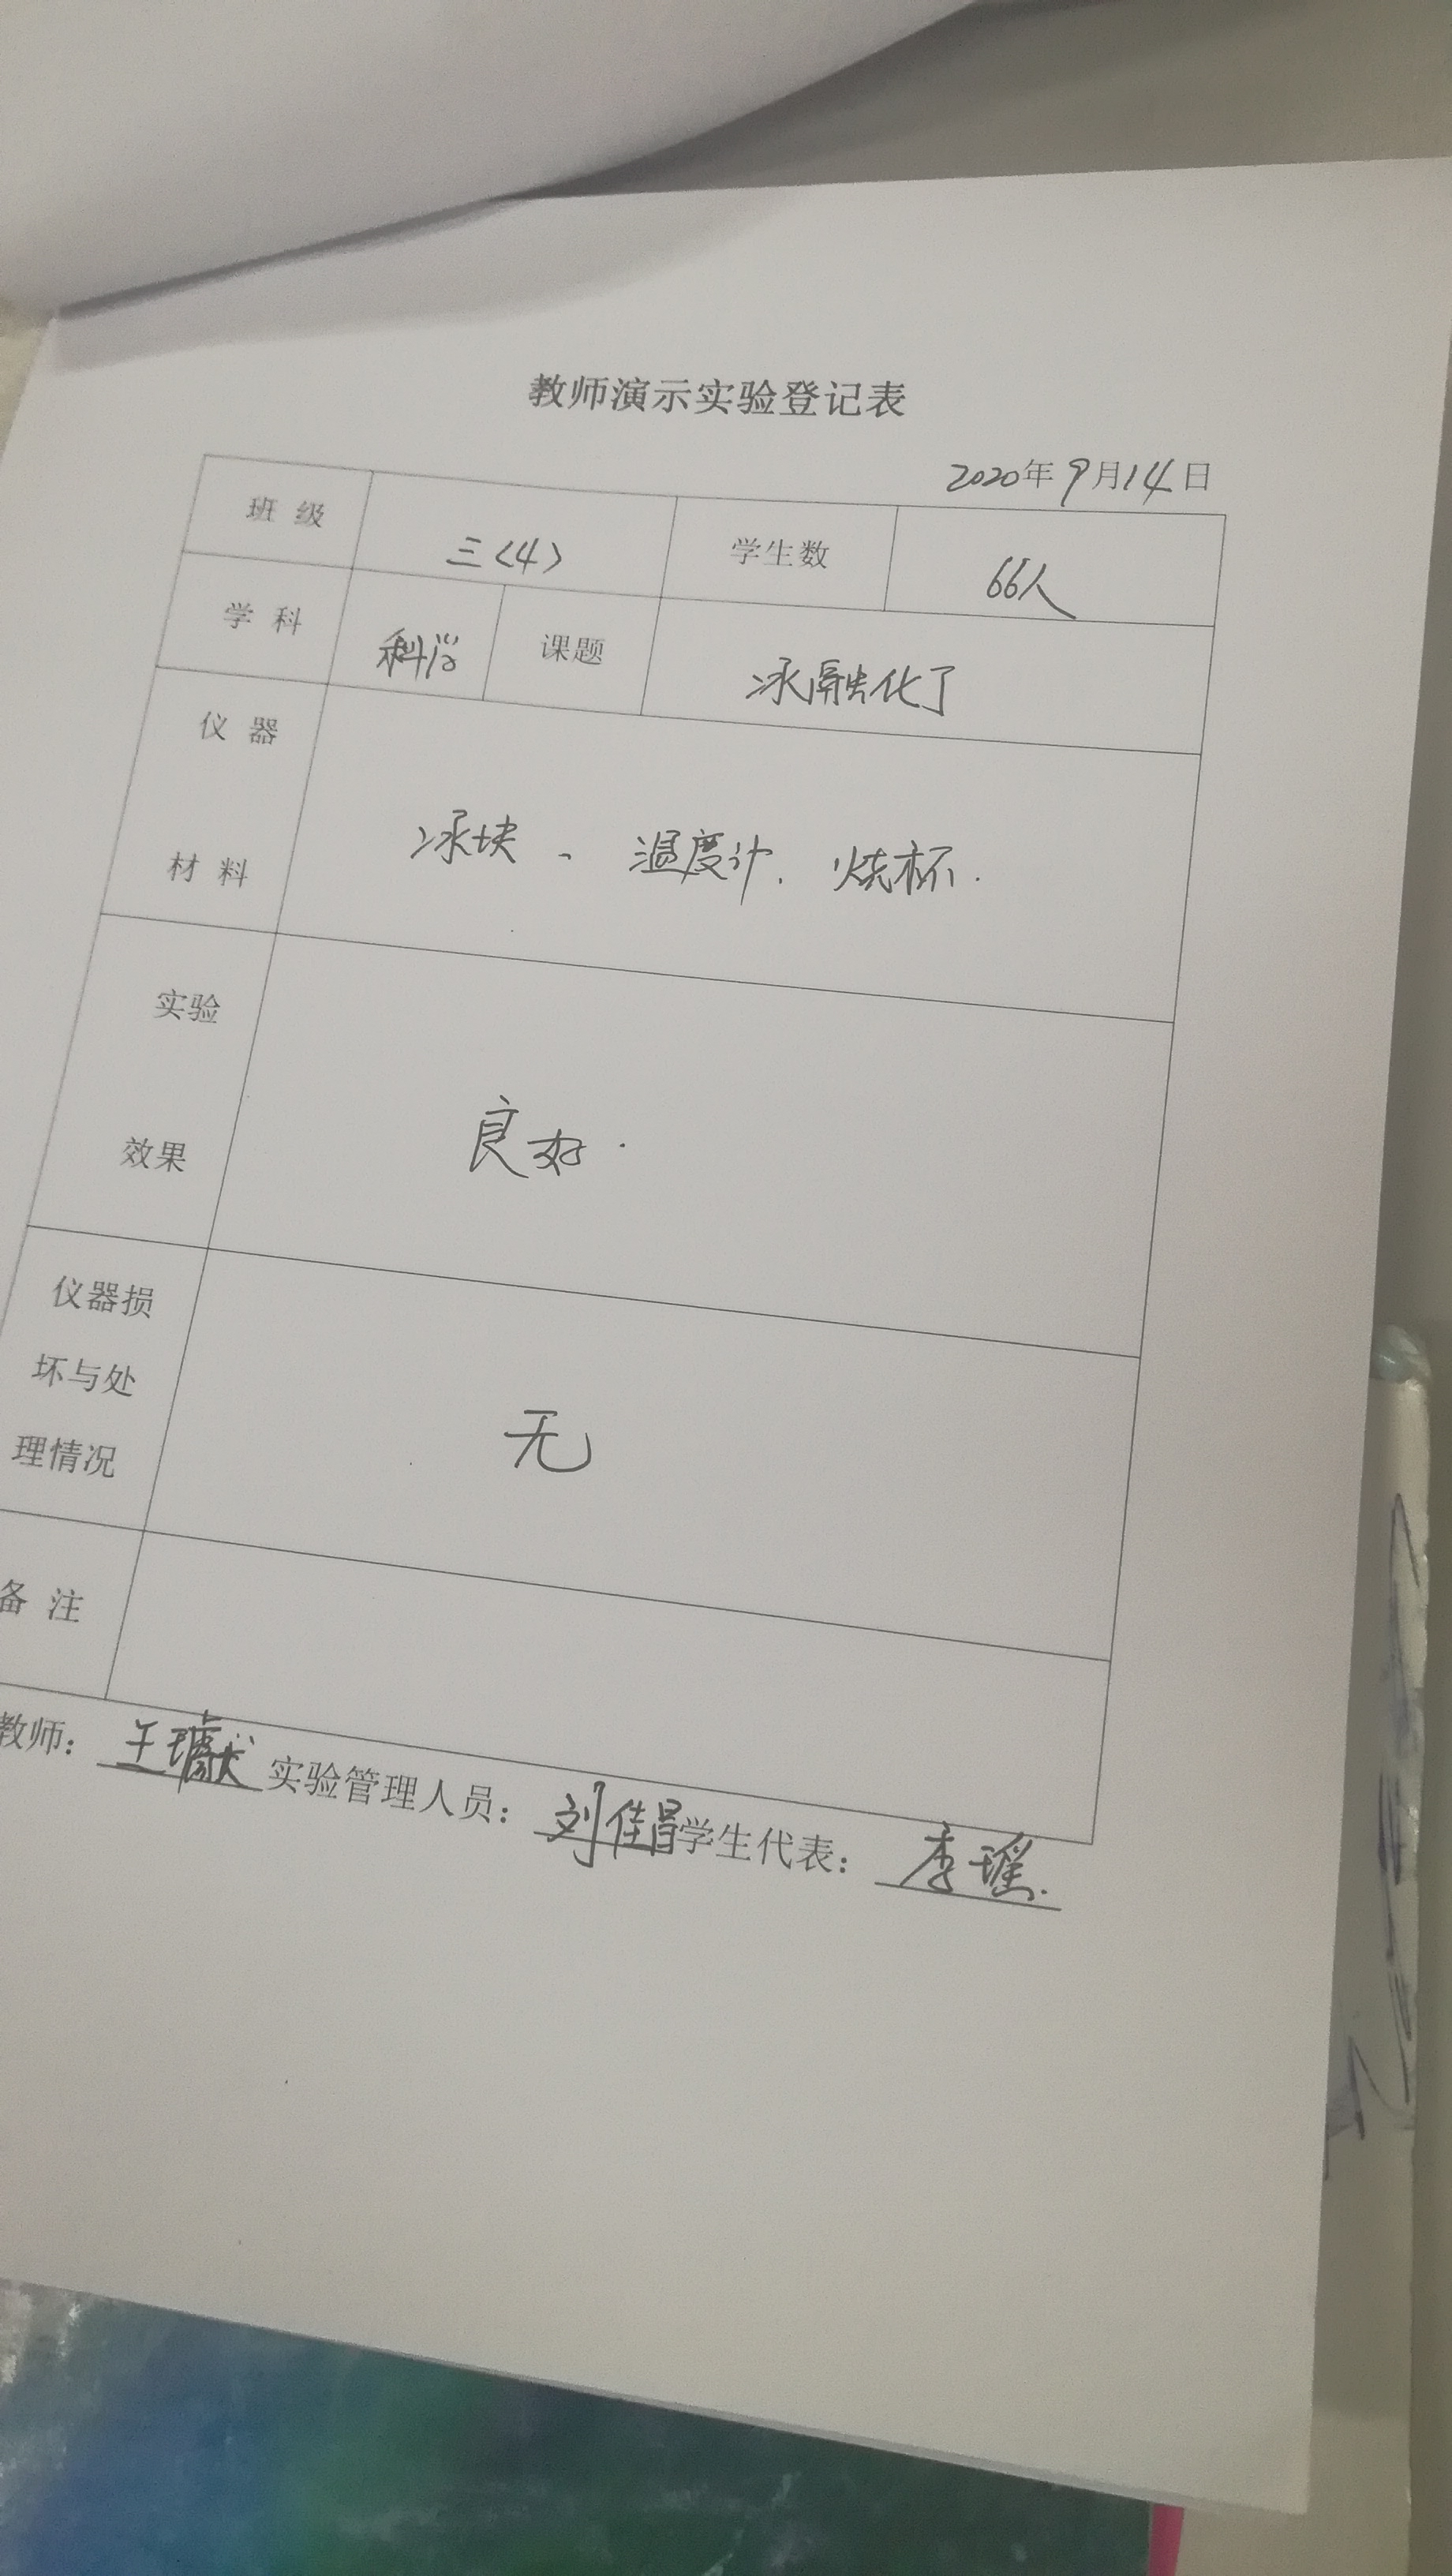 教师演示实验登记表
2020年9月14日
班 级 三<4> 学生数 66人
学 科 科学 课题 冰融化了
仪 器
材 料
冰块、温度计、烧杯.
实验
效果
良好.
仪器损
坏与处
理情况
无
备 注
教师: 王 实验管理人员: 刘佳昌 学生代表: 李瑶.